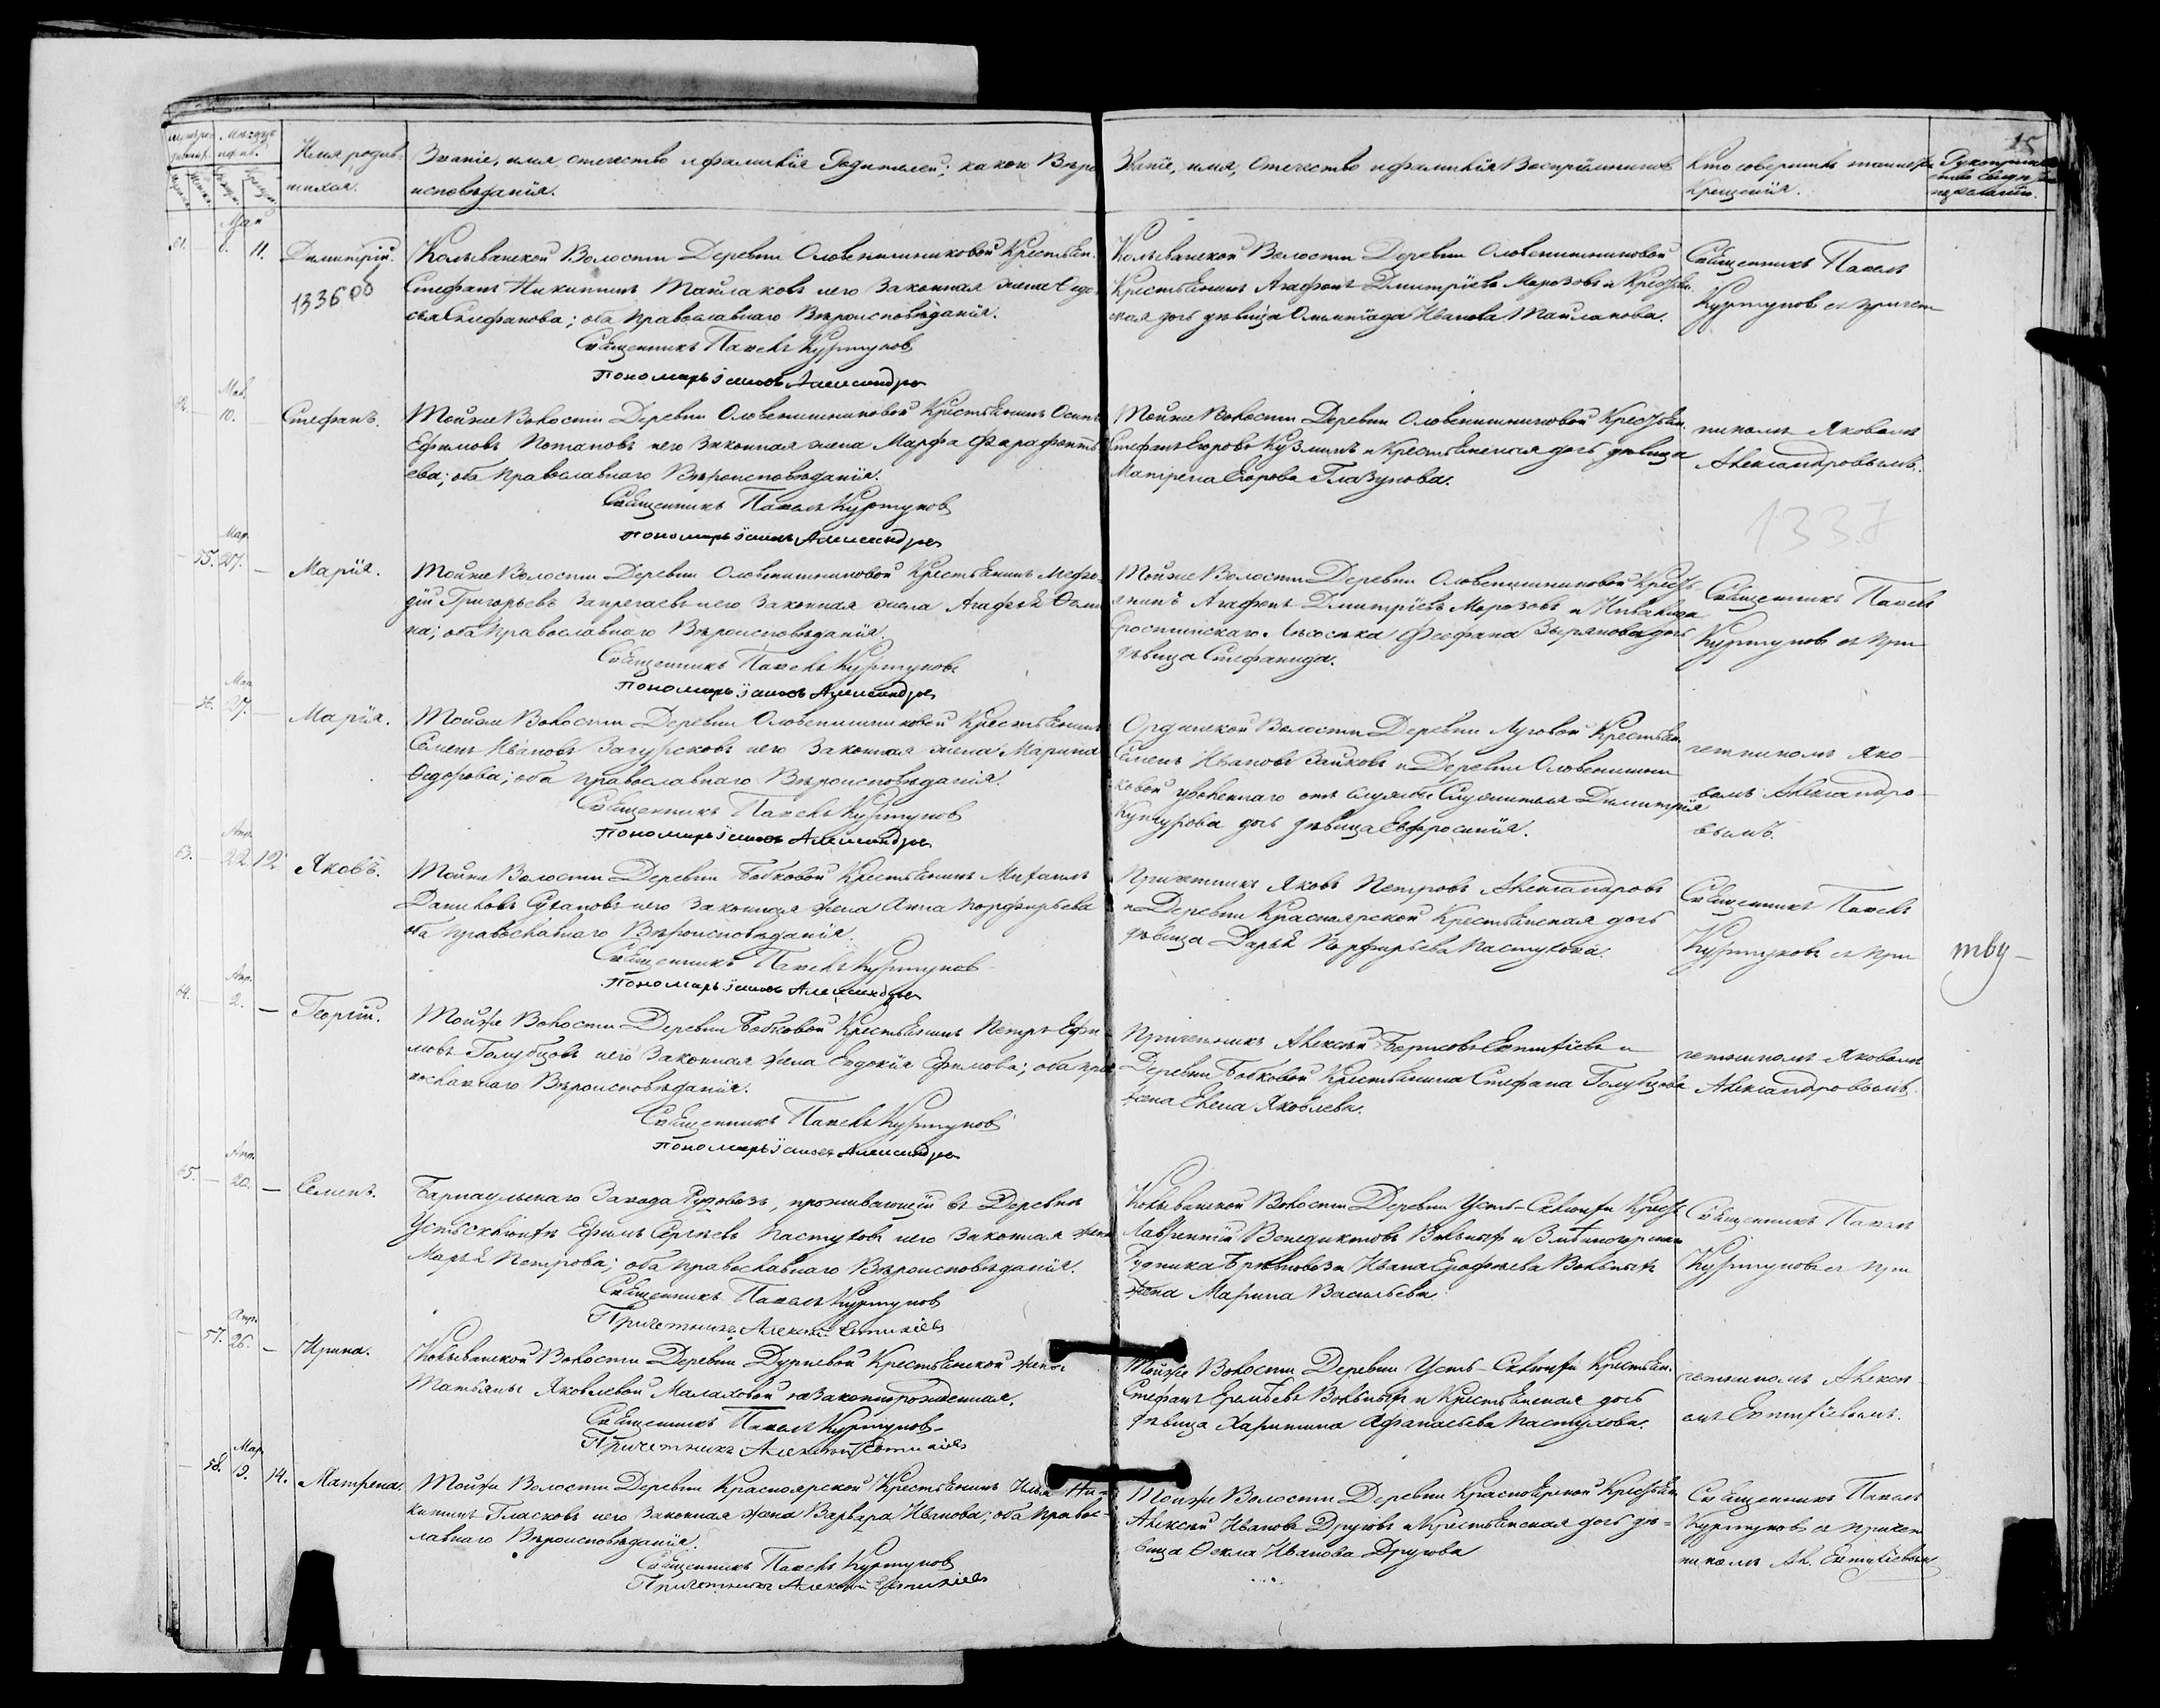 15
Имя родив-
шихся.
Званіе, имя отечество и фамилія Родителей; какого Веро
исповѣданія.
Званіе, имя, Отечество и фамилія Воспріемниковъ
Кто совершилъ таинство
Крещенія.
Май
61. 6. 11. Димитрій.
1336 об
Колыванской Волости Деревни Оловенишниковой Крестьян.
Стефанъ Никитинъ Тайлаковъ и его Законная жена
Стефанова; оба Православнаго Вѣроисповѣданія.
Священникъ Павелъ Куртуковъ
Пономарь Іаковъ Александров
Колыванской Волости Деревни Оловенишниковой
Крестьянинъ Агафонъ Димитріевъ Морозовъ и Крестьян.
ская дочь дѣвица Олимпіада Иванова Тайлакова.
Священникъ Павелъ
Куртуковъ съ причет
Мая
62. — 10. — Стефанъ.
Тойже Волости Деревни Оловенишниковой Крестьянинъ Осипъ
Ефимовъ Потаповъ и его Законная жена Марфа Фарафонть
ева; оба Православнаго Вѣроисповѣданія.
Священникъ Павелъ Куртуковъ
Пономарь Іаковъ Александров
Тойже Волости Деревни Оловенишниковой Крестьян.
Стефанъ Егоровъ Кузминъ и Крестьянская дочь дѣвица
Матрена Егорова Глазунова.
никомъ Яковомъ
Александровымъ.
1337
— 55. 27. — Марія.
Тойже Волости Деревни Оловенишниковой Крестьянинъ Мефо-
дій Григорьевъ Запрегаевъ и его Законная жена Агафья Фоми
на; оба Православнаго Вѣроисповѣданія.
Священникъ Павелъ Куртуковъ
Пономарь Іаковъ Александров
Тойже Волости Деревни Оловенишниковой Кресть-
янинъ Агафонъ Димитріевъ Морозовъ и
Феофана Зырянова дочь
дѣвица Стефанида.
Священникъ Павелъ
Куртуковъ съ при
— 56. 27. — Марія.
Тойже Волости Деревни Оловенишниковой Крестьянинъ
Семенъ Ивановъ Загурсковъ и его Законная жена Марина
Федорова; оба православнаго Вѣроисповѣданія.
Священникъ Павелъ Куртуковъ
Пономарь Іаковъ Александров
Ординской Волости Деревни Луговой Крестьян
Семенъ Ивановъ Зайковъ и Деревни Оловенишни
ковой уволеннаго отъ службы Служителя Димитрія
дочь дѣвица Евфросинія.
четникомъ Яко-
вомъ Александро-
вымъ.
Апр.
63. — 22 12 Яковъ.
Тойже Волости Деревни Бобковой Крестьянинъ Михаилъ
Даниловъ Сухановъ и его Законная Жена Анна Порфирьева
оба Православнаго Вѣроисповѣданія.
Священникъ Павелъ Куртуковъ
Пономарь Іаковъ Александров
Причетникъ Яковъ Петровъ Александровъ
и Деревни Красноярской Крестьянская дочь
дѣвица Дарья Порфирьева Пастухова.
Священникъ Павелъ
Куртуковъ съ При
тву-
Апр.
64. — 2. — Георгій.
Тойже Волости Деревни Бобковой Крестьянинъ Петръ Ефи
мовъ Голубцовъ и его Законная Жена Евдокія Ефимова; оба Пра
вославнаго Вѣроисповѣданія.
Священникъ Павелъ Куртуковъ
Пономарь Іаковъ Александров
Причетникъ Алексѣй Борисовъ Евтихіевъ и
Деревни Бобковой Крестьянина Стефана Голубцова
жена Елена Яковлева.
четникомъ Яковомъ
Александровымъ.
Апр.
65. — 20. — Семенъ.
Барнаульскаго Завода Рудовозъ, проживающій въ Деревнѣ
Устьсклюихѣ Ефимъ Сергѣевъ Пастуховъ и его Законная жена
Марья Петрова; оба Православнаго Вѣроисповѣданія.
Священникъ Павелъ Куртуковъ
Причетникъ Алексѣй Евтихіевъ
Колыванской Волости Деревни Усть-Склюихи Крест.
Лаврентій Венедиктовъ и Змѣиногорскаго
Рудника Ивана Ерофѣева
Жена Марина Васильева.
Священникъ Павелъ
Куртуковъ съ При
Апр.
— 57. 26. — Ирина.
Колыванской Волости Деревни Дурневой Крестьянской жены
Татьяны Яковлевой Малаховой незаконнорожденная.
Священникъ Павелъ Куртуковъ
Причетникъ Алексѣй Евтихіевъ
Тойже Волости Деревни Усть-Склюихи Крестьян.
Стефанъ Еремѣевъ и Крестьянская дочь
дѣвица Харитина Афанасьева Пастухова.
четникомъ Алексѣ-
емъ Евтихіевымъ.
— 58. 13. 14. Матрена.
Тойже Волости Деревни Красноярской Крестьянинъ Илья Ни-
китинъ Гласковъ и его Законная жена Варвара Иванова; оба Правос-
лавнаго Вѣроисповѣданія.
Священникъ Павелъ Куртуковъ
Причетникъ Алексѣй Евтихіевъ
Тойже Волости Деревни Красноярской Крестьян
Алексѣй Ивановъ Друговъ и Крестьянская дочь дѣ-
вица Фекла Иванова Другова
Священникъ Павелъ
Куртуковъ съ причет
никомъ Ал. Евтихіевымъ